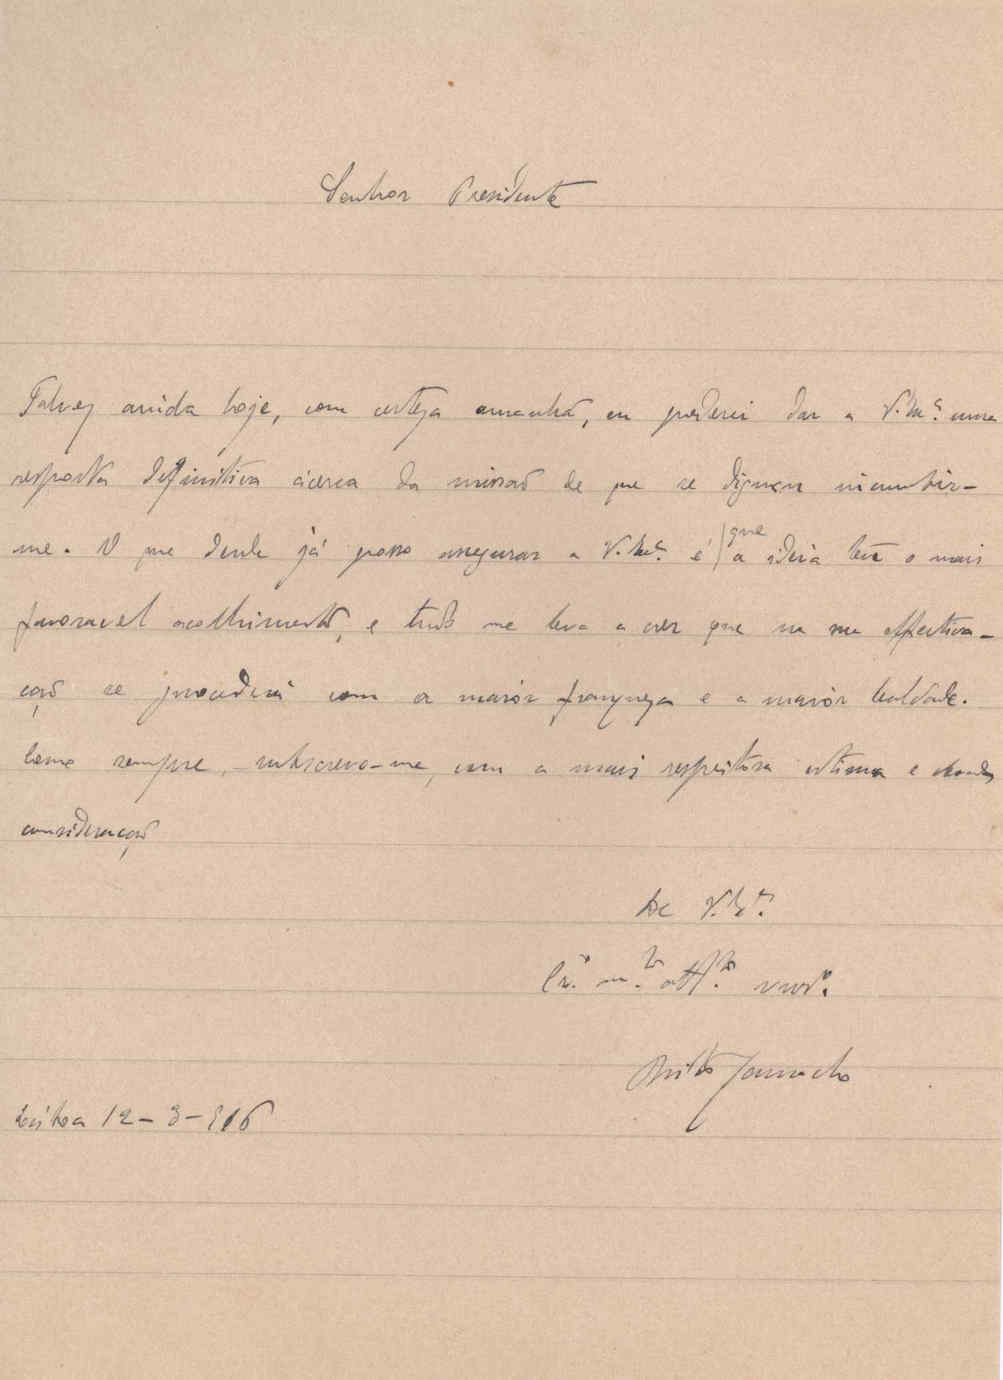 Senhor Presidente
Talvez ainda hoje, com certeza amanhã, eu poderei dar a V. Ex.ª uma
resposta definitiva ácerca da missão de que se dignou incumbir-
me. O que desde já posso assegurar a V. Ex.ª é que a ideia tem o mais
favoravel acolhimento, e tudo me leva a crer que na sua effectiva-
ção se procederá com a maior franqueza e a maior lealdade.
Como sempre, subscrevo-me, com a mais respeitosa estima e
consideração
De V. Ex.ª
Cr.º m.to att.to
Brito Camacho
Lisboa 12-3-916